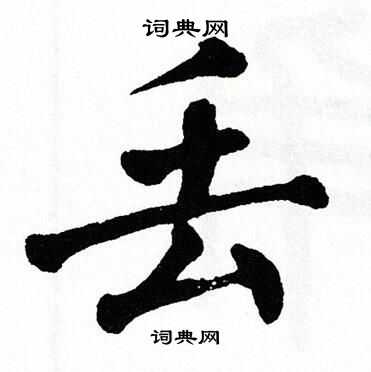 词典网
丢
词典网